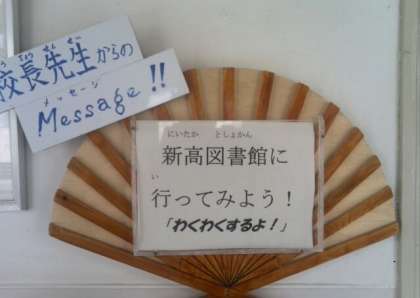 校長先生からの
こうちょうせんせい
メッセージ
Message!!
にいたか としょかん
新高図書館に
い
行ってみよう!
「わくわくするよ!」